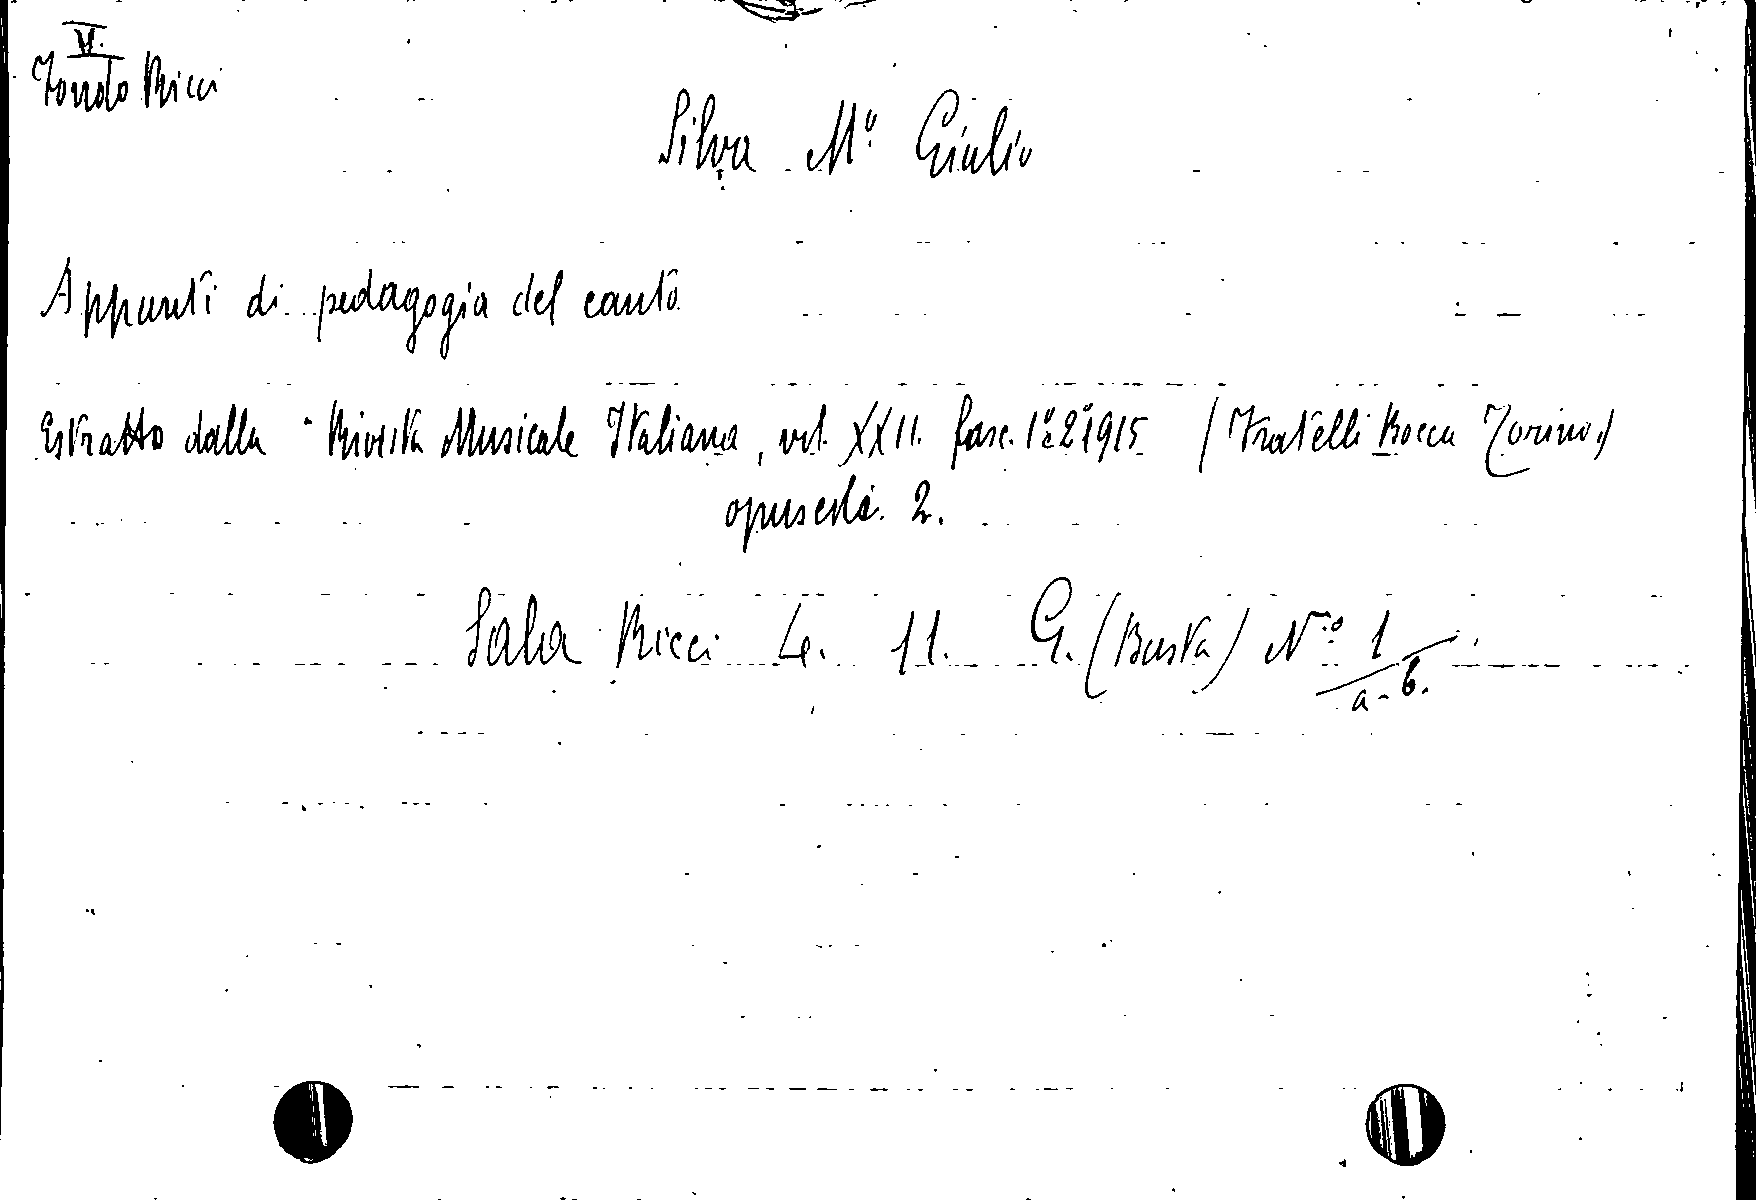 VI.
Fondo Ricci
Silva Mº Giulio
Appunti di pedagogia del canto
Estratto dalla "Rivista Musicale Italiana, vol. XXII. fasc. 1º e 2º 1915 (Fratelli Bocca Torino.)
opuscoli. 2.
Sala Ricci 4. 11. G. (Busta) Nº 1
a-b.